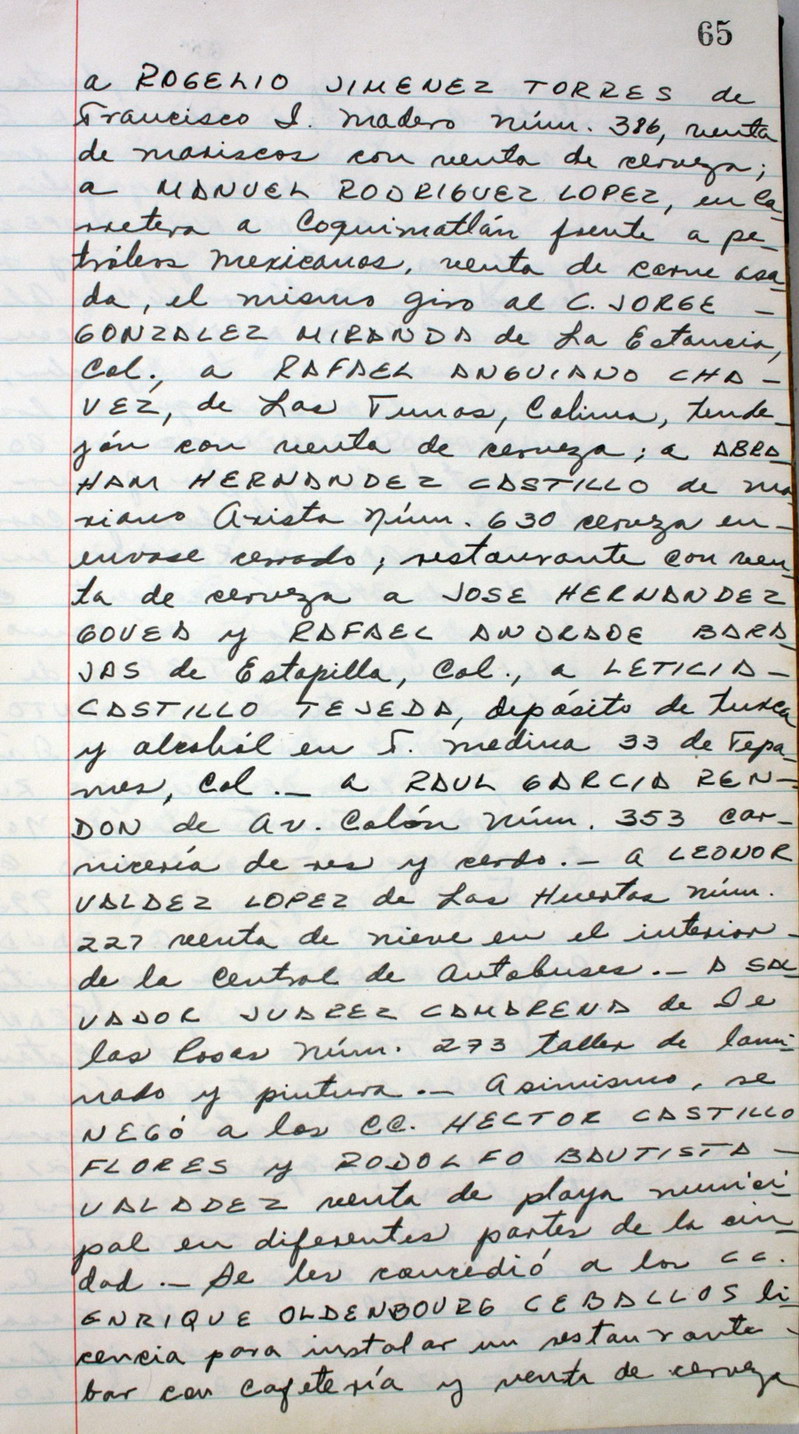 65
a ROGELIO JIMENEZ TORRES de
Francisco I. Madero Núm. 386, venta
de mariscos con venta de cerveza;
a MANUEL RODRIGUEZ LOPEZ, en ca-
rretera a Coquimatlán frente a pe-
tróleos Mexicanos, venta de carne asa-
da, el mismo giro al C. JORGE -
GONZALEZ MIRANDA de La Estancia,
Col., a RAFAEL ANGUIANO CHA-
VEZ, de Las Tunas, Colima, tende-
jón con venta de cerveza; a ABRA-
HAM HERNANDEZ CASTILLO de Ma-
riano Arista Núm. 630 cerveza en-
envase cerrado; restaurante con ven-
ta de cerveza a JOSE HERNANDEZ
GOVEA y RAFAEL ANDRADE BARA-
JAS de Estapilla, Col., a LETICIA -
CASTILLO TEJEDA, depósito de tuxca
y alcohól en T. Medina 33 de Tepa-
mes, Col._ a RAUL GARCIA REN-
DON de Av. Colón Núm. 353 car-
nicería de res y cerdo._ A LEONOR
VALDEZ LOPEZ de Las Huertas Núm.
227 venta de nieve en el interior -
de la Central de Autobuses._ A SAL-
VADOR JUAREZ CAMARENA de De
las Rosas Núm. 273 taller de lami-
nado y pintura._ Asimismo, se
NEGÓ a los CC. HECTOR CASTILLO
FLORES y RODOLFO BAUTISTA -
VALADEZ venta de playa munici-
pal en diferentes partes de la ciu-
dad._ Se les concedió a los CC.
ENRIQUE OLDENBOURG CEBALLOS li-
cencia para instalar un restaurante -
bar con cafetería y venta de cerveza